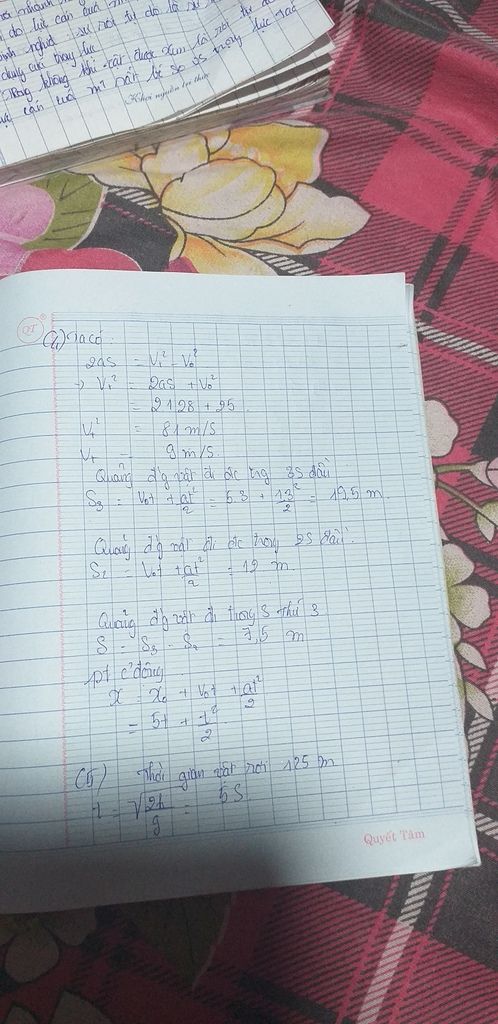 do lực cản
Trong không khí
Khơi nguồn tri thức
QT
(4) Ta có:
2as = V₁² - V₀²
→ V₁² = 2as + V₀²
= 2.1.28 + 25
V₁² = 81 m/s
V₁ = 9 m/s
Quãng đg vật đi đc trg 3s đầu
S₃ = V₀t + at²/2 = 5.3 + 1.3²/2 = 19,5 m
Quãng đg vật đi đc trong 2s đầu
S₂ = V₀t + at²/2 = 12 m
Quãng đg vật đi trong s thứ 3
S = S₃ - S₂ = 7,5 m
pt c° động
x = x₀ + V₀t + at²/2
= 5t + t²/2
(5) Thời gian vật rơi 125 m
t = √2h/g = 5s
Quyết Tâm